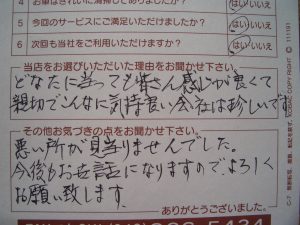 4 お車はきれいに清掃してありましたか? はい いいえ
5 今回のサービスにご満足いただけましたか? はい いいえ
6 次回も当社をご利用いただけますか? はい いいえ
当店をお選びいただいた理由をお聞かせ下さい。
どなたに当っても皆さん感じが良くて
親切でこんなに気持良い会社は珍しいです
その他お気づきの点をお聞かせ下さい。
悪い所が見当りませんでした。
今後もお世話になりますのでよろしく
お願い致します。
ありがとうございました。